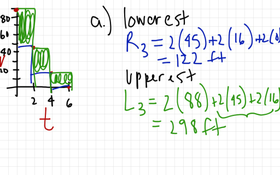 80
60
40
10
2 4 6
t
a.) lowerest
R₃ = 2(45)+2(16)+2(0
= 122 ft
Upperest
L₃ = 2(88)+2(45)+2(16)
= 298 ft